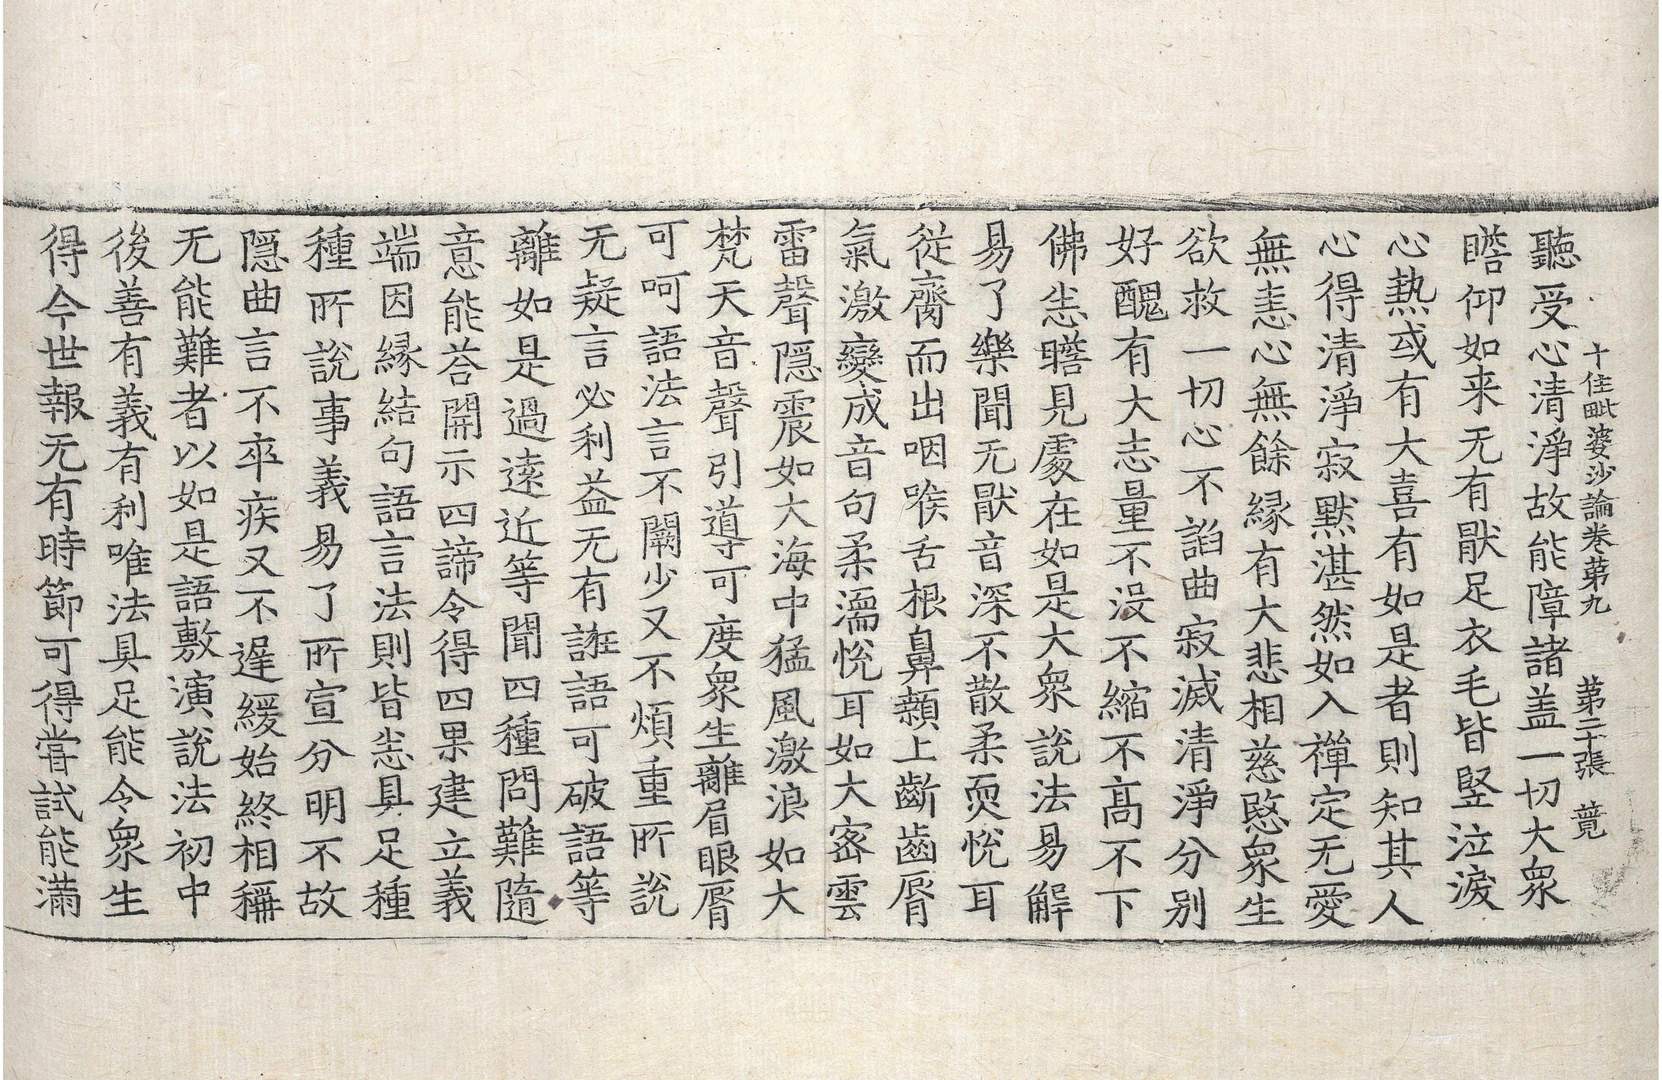 十住毗婆沙論卷第九 第二十張 蕒
聽受心清淨故能障諸盖一切大衆
瞻仰如来无有猒足衣毛皆竪泣淚
心熱或有大喜有如是者則知其人
心得清淨寂黙湛然如入禪定无愛
無恚心無餘縁有大悲相慈愍衆生
欲救一切心不諂曲寂滅清淨分别
好醜有大志量不没不縮不髙不下
佛㤙瞻見處在如是大衆說法易解
易了樂聞无猒音深不散柔耎悅耳
從齎而出咽喉舌根鼻顙上齗齒脣
氣激變成音句柔濡悅耳如大密雲
雷聲隠震如大海中猛風激浪如大
梵天音聲引導可度衆生離眉眼脣
可呵語法言不闕少又不煩重所說
无疑言必利益无有誑語可破語等
離如是過遠近等聞四種問難隨
意能荅開示四諦令得四果建立義
端因縁結句語言法則皆㤙具足種
種所說事義易了所宣分明不故
隠曲言不卒疾又不遲緩始終相稱
无能難者以如是語敷演說法初中
後善有義有利唯法具足能令衆生
得今世報无有時節可得甞試能滿